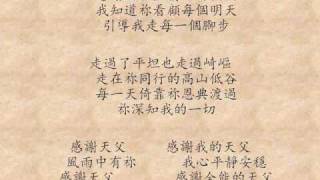 我知道祢看顧每個明天
引導我走每一個腳步
走過了平坦也走過崎嶇
走在祢同行的高山低谷
每一天倚靠祢恩典渡過
祢深知我的一切
感謝天父 感謝我的天父
風雨中有祢 我心平靜安穩
感謝天父 感謝全能的天父